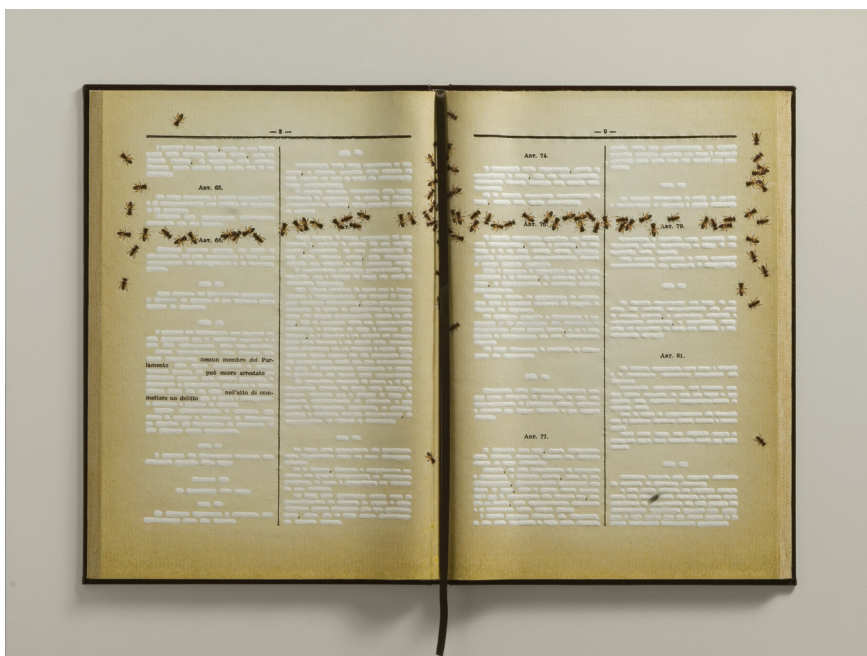 — 8 —
ART. 65.
ART. 66.
nessun membro del Par-
lamento
può essere arrestato
nell'atto di com-
mettere un delitto
— 9 —
ART. 74.
ART. 75.
ART. 77.
ART. 79.
ART. 81.